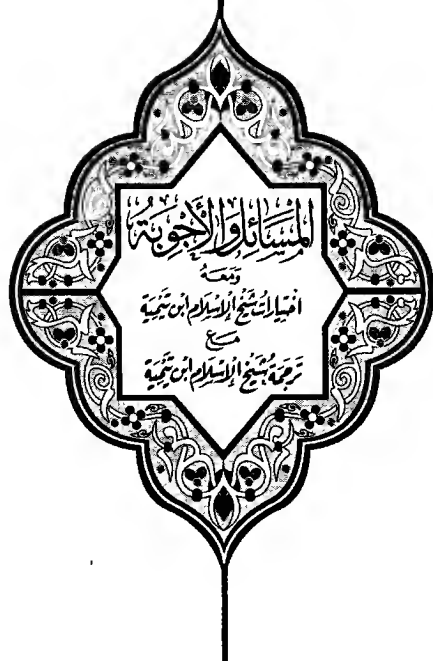 المسائل والأجوبة
ومعه
اختيارات شيخ الإسلام ابن تيمية
مع
ترجمة شيخ الإسلام ابن تيمية